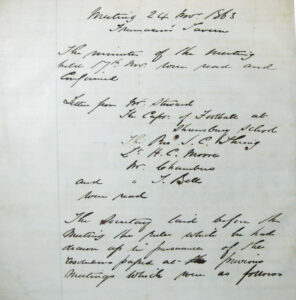 Meeting 24 Nov. 1863
Freemasons Tavern
The minutes of the Meeting
held 17th Nov. were read and
Confirmed
Letters from Mr. Steward
The Capt. of Football at
Shrewsbury School
The Revd J. C. Thring
Dr H. C. Moore
Mr. Chambers
and " J. Bell
were read
The Secretary laid before the
Meeting the rules which he had
drawn up in pursuance of the
resolutions passed at previous
Meetings which were as follows